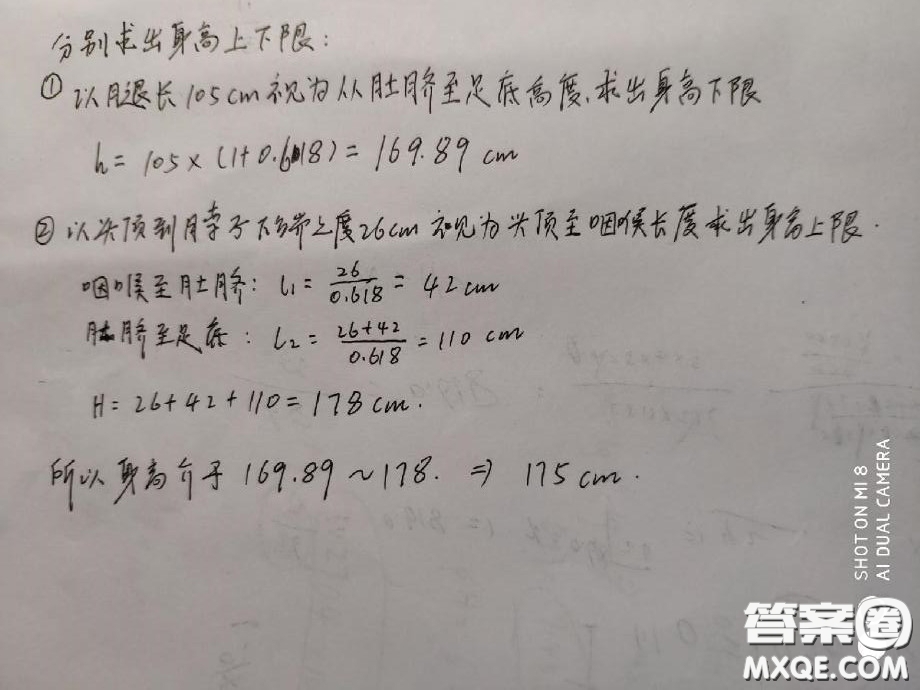 分别求出身高上下限:
① 以腿长105cm视为从肚脐至足底高度,求出身高下限
h = 105 × (1+0.618) = 169.89 cm
② 以头顶到脖子下端之度26cm视为头顶至咽喉长度求出身高上限.
咽喉至肚脐: l₁ = 26/0.618 = 42cm
肚脐至足底: l₂ = (26+42)/0.618 = 110 cm
H = 26+42+110 = 178cm.
所以身高介于169.89~178. ⇒ 175cm.
SHOT ON MI 8
AI DUAL CAMERA
答案圈
MXQE.COM